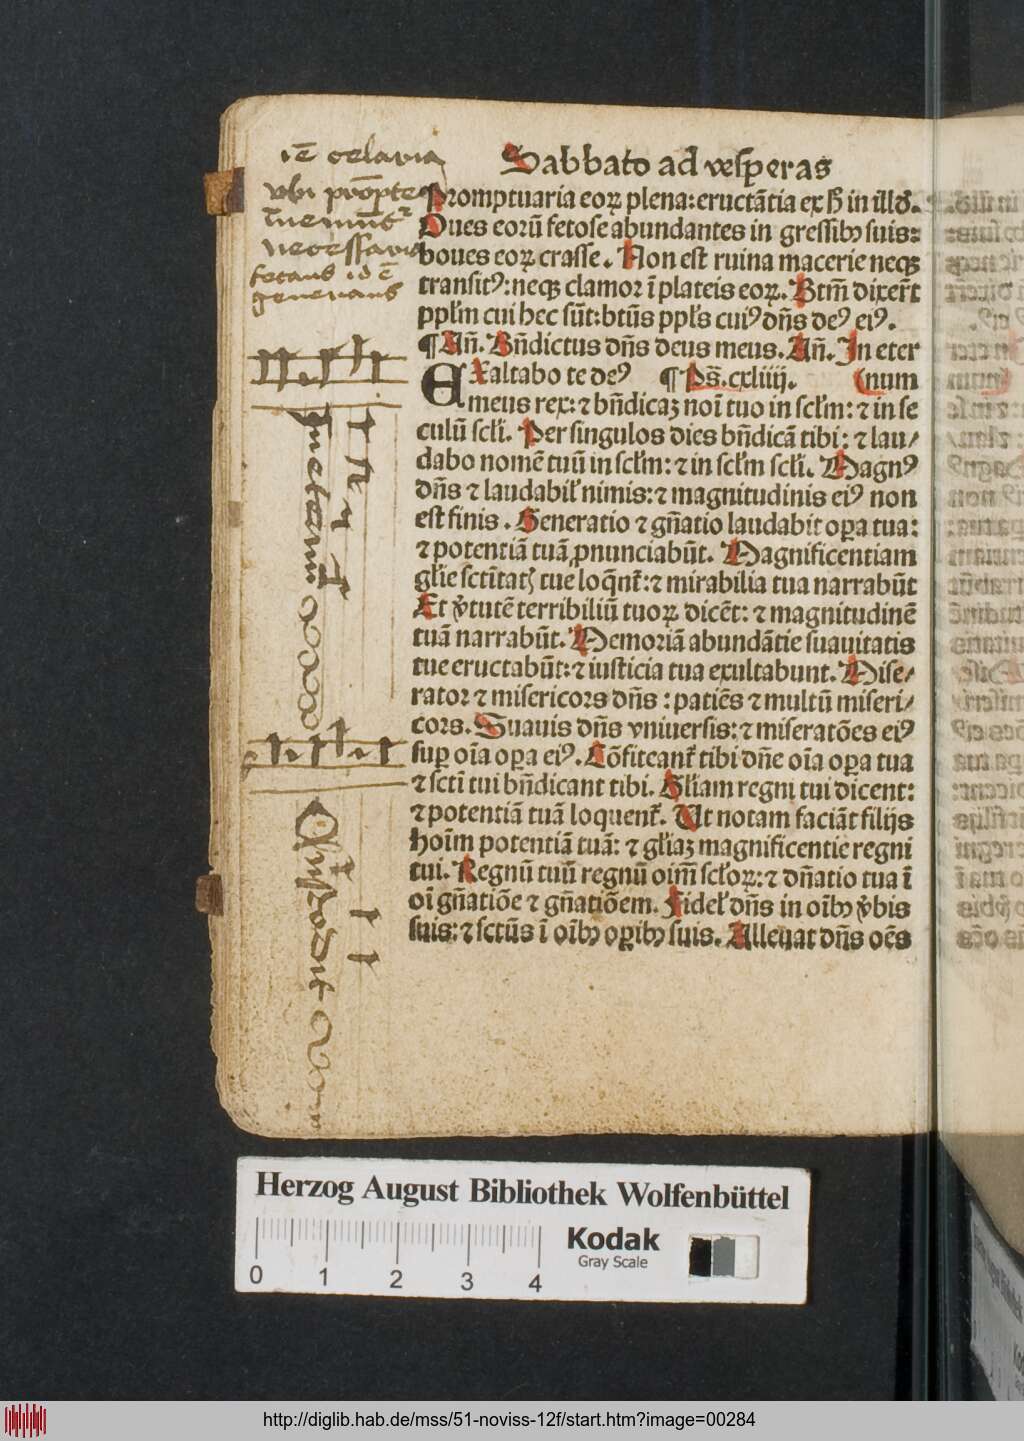 Sabbato ad vesꝑeras
Promptuaria eoꝝ plena:eructãtia ex ħ in illđ.
Oues eorũ fetose abundantes in gressibꝫ suis:
boues eoꝝ crasse. Non est ruina macerie neqꝫ
transitꝰ:neqꝫ clamor ĩ plateis eoꝝ. Btm̃ dixert̃
ppl'm cui hec sũt:btũs ppl's cuiꝰ dñs deꝰ eiꝰ.
¶ Añ. Bñdictus dñs deus meus. Añ. In eter
EXaltabo te deꝰ ¶ Ps̃. cxliiij. (num
meus rex:⁊ bñdicaꝫ noĩ tuo in scl'm:⁊ in se
culũ scl'i. Per singulos dies bñdicã tibi:⁊ lau/
dabo nomẽ tuũ in scl'm:⁊ in scl'm scl'i. Magnꝰ
dñs ⁊ laudabil' nimis:⁊ magnitudinis eiꝰ non
est finis. Generatio ⁊ gñatio laudabit oꝑa tua:
⁊ potentiã tuã ꝓnunciabũt. Magnificentiam
gl'ie sctĩtatꝭ tue loq̃nt̃:⁊ mirabilia tua narrabũt
Et v̾tutẽ terribiliũ tuoꝝ dicẽt:⁊ magnitudinẽ
tuã narrabũt. Memoriã abundãtie suauitatis
tue eructabũt:⁊ iusticia tua exultabunt. Mise/
rator ⁊ misericors dñs: patiẽs ⁊ multũ miseri/
cors. Suauis dñs vniuersis:⁊ miseratões eiꝰ
suꝑ oĩa oꝑa eiꝰ. Cõfiteant̃ tibi dñe oĩa oꝑa tua
⁊ sctĩ tui bñdicant tibi. Gl'iam regni tui dicent:
⁊ potentiã tuã loquent̃. Ut notam faciãt filijs
hoĩm potentiã tuã: ⁊ gl'iaꝫ magnificentie regni
tui. Regnũ tuũ regnũ oim̃ scl'oꝝ:⁊ dñatio tua ĩ
oĩ gñatiõe ⁊ gñatiõem. Fidel' dñs in oĩbꝫ v̾bis
suis:⁊ sctũs ĩ oĩbꝫ oꝑibꝫ suis. Alleuat dñs oẽs
iẽ celaria
vbi
necessaria
fetans id ẽ
generans
In eternũ
Herzog August Bibliothek Wolfenbüttel
0 1 2 3 4
Kodak
Gray Scale
http://diglib.hab.de/mss/51-noviss-12f/start.htm?image=00284